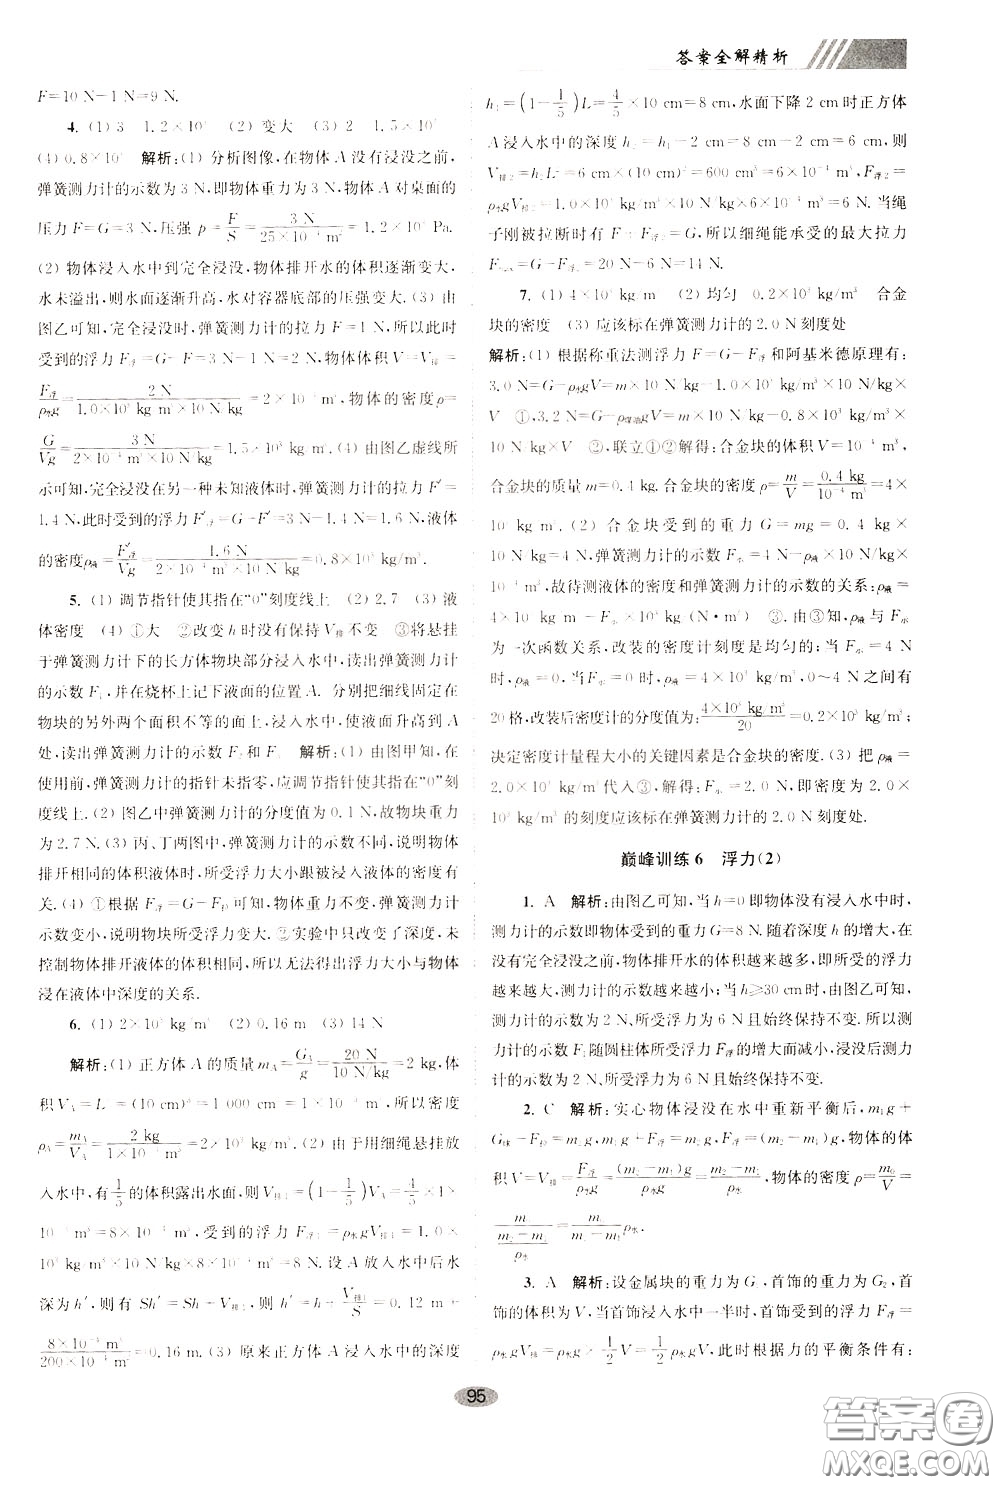 答案全解精析
F=10 N-1 N=9 N.
4. (1) 3 1.2×10 (2) 变大 (3) 2 1.5×10
(4) 0.8×10 解析:(1) 分析图像,在物体 A 没有浸没之前,
弹簧测力计的示数为 3 N,即物体重力为 3 N,物体 A 对桌面的
压力 F=G=3 N,压强 p=F/S=3 N/25×10 m²=1.2×10 Pa.
(2) 物体浸入水中到完全浸没,物体排开水的体积逐渐变大,
水未溢出,则水面逐渐升高,水对容器底部的压强变大.(3) 由
图乙可知,完全浸没时,弹簧测力计的拉力 F=1 N,所以此时
受到的浮力 F浮=G-F=3 N-1 N=2 N,物体体积 V=V排=
F浮/ρ水g=2 N/1.0×10³ kg/m³×10 N/kg=2×10 m³,物体的密度ρ=
G/Vg=3 N/2×10 m³×10 N/kg=1.5×10³ kg/m³.(4) 由图乙虚线所
示可知,完全浸没在另一种未知液体时,弹簧测力计的拉力 F′=
1.4 N,此时受到的浮力 F′浮=G-F′=3 N-1.4 N=1.6 N,液体
的密度ρ液=F′浮/Vg=1.6 N/2×10 m³×10 N/kg=0.8×10³ kg/m³.
5. (1) 调节指针使其指在“0”刻度线上 (2) 2.7 (3) 液
体密度 (4) ①大 ②改变 h 时没有保持 V排 不变 ③将悬挂
于弹簧测力计下的长方体物块部分浸入水中,读出弹簧测力计
的示数 F,并在烧杯上记下液面的位置 A. 分别把细线固定在
物块的另外两个面积不等的面上,浸入水中,使液面升高到 A
处,读出弹簧测力计的示数 F 和 F 解析:(1) 由图甲知,在
使用前,弹簧测力计的指针未指零,应调节指针使其指在“0”刻
度线上.(2) 图乙中弹簧测力计的分度值为 0.1 N,故物块重力
为 2.7 N.(3) 丙、丁两图中,弹簧测力计示数不同,说明物体
排开相同的体积液体时,所受浮力大小跟被浸入液体的密度有
关.(4) ①根据 F浮=G-F示可知,物体浸入水中,弹簧测力计
示数变小,说明物块所受浮力变大.②实验中只改变了深度,未
控制物体排开液体的体积相同,所以无法得出浮力大小与物体
浸在液体中深度的关系.
6. (1) 2×10³ kg/m³ (2) 0.16 m (3) 14 N
解析:(1) 正方体 A 的质量 mA=GA/g=20 N/10 N/kg=2 kg,体
积 VA=L=(10 cm)³=1 000 cm=1×10 m³,所以密度
ρA=mA/VA=2 kg/1×10 m³=2×10³ kg/m³.(2) 由于用细绳悬挂放
入水中,有1/5的体积露出水面,则 V排1=(1-1/5)VA=4/5×1×
10 m³=8×10 m³,受到的浮力 F浮1=ρ水gV排1=1.0×
10³ kg/m³×10 N/kg×8×10 m³=8 N.设 A 放入水中后水
深为 h′,则有 Sh′=Sh+V排1,则 h′=h+V排1/S=0.12 m+
8×10 m³/200×10 m²=0.16 m.(3) 原来正方体 A 浸入水中的深度
h₁=(1-1/5)L=4/5×10 cm=8 cm,水面下降 2 cm 时正方体
A 浸入水中的深度 h₂=h₁-2 cm=8 cm-2 cm=6 cm,则
V排2=h₂L²=6 cm×(10 cm)²=600 cm³=6×10 m³,F浮2=
ρ水gV排2=1.0×10³ kg/m³×10 N/kg×6×10 m³=6 N.当绳
子刚被拉断时有 G=F+F浮2=G,所以细绳能承受的最大拉力
F=G-F浮2=20 N-6 N=14 N.
7. (1) 4×10³ kg/m³ (2) 均匀 0.2×10³ kg/m³ 合金
块的密度 (3) 应该标在弹簧测力计的 2.0 N 刻度处
解析:(1) 根据称重法测浮力 F=G-F浮和阿基米德原理有:
3.0 N=G-ρ水gV=m×10 N/kg-1.0×10³ kg/m³×10 N/kg×
V ①,3.2 N=G-ρ煤油gV=m×10 N/kg-0.8×10³ kg/m³×
10 N/kg×V ②,联立①②解得:合金块的体积 V=10 m³,
合金块的质量 m=0.4 kg.合金块的密度ρ=m/V=0.4 kg/10 m³=4×
10³ kg/m³.(2) 合金块受到的重力 G=mg=0.4 kg×
10 N/kg=4 N,弹簧测力计的示数 F示=4 N-ρ液×10 N/kg×
10 m³,故待测液体的密度和弹簧测力计的示数的关系:ρ液=
4×10³ kg/m³-F示×10³ kg/(N·m³) ③,由③可知,ρ液与 F示
为一次函数关系,改装的密度计刻度是均匀的;当 F示=4 N
时,ρ液=0,当 F示=0 时,ρ液=4×10³ kg/m³,0~4 N 之间有
20 格,改装后密度计的分度值为:4×10³ kg/m³/20=0.2×10³ kg/m³;
决定密度计量程大小的关键因素是合金块的密度.(3) 把ρ液=
2.0×10³ kg/m³代入③,解得:F示=2.0 N,即密度为 2.0×
10³ kg/m³的刻度应该标在弹簧测力计的 2.0 N 刻度处.
巅峰训练 6 浮力(2)
1. A 解析:由图乙可知,当 h=0 即物体没有浸入水中时,
测力计的示数即物体受到的重力 G=8 N.随着深度 h 的增大,在
没有完全浸没之前,物体排开水的体积越来越多,即所受的浮力
越来越大,测力计的示数越来越小;当 h≥30 cm 时,由图乙可知,
测力计的示数为 2 N,所受浮力为 6 N 且始终保持不变.所以测
力计的示数 F₁随圆柱体所受浮力 F浮的增大而减小,浸没后测力
计的示数为 2 N、所受浮力为 6 N 且始终保持不变.
2. C 解析:实心物体浸没在水中重新平衡后,m₁g+
G球-F浮=m₂g,m₁g+F浮=m₂g,F浮=(m₂-m₁)g,物体的体
积 V=V排=F浮/ρ水g=(m₂-m₁)g/ρ水g=m₂-m₁/ρ水,物体的密度ρ=m₀/V=
m/m₂-m₁/ρ水=m/m₂-m₁ρ水.
3. A 解析:设金属块的重力为 G₁,首饰的重力为 G₂,首
饰的体积为 V,当首饰浸入水中一半时,首饰受到的浮力 F浮=
ρ水gV排=ρ水g×1/2V=1/2ρ水gV,此时根据力的平衡条件有:
95
答案圈
MXQE.COM